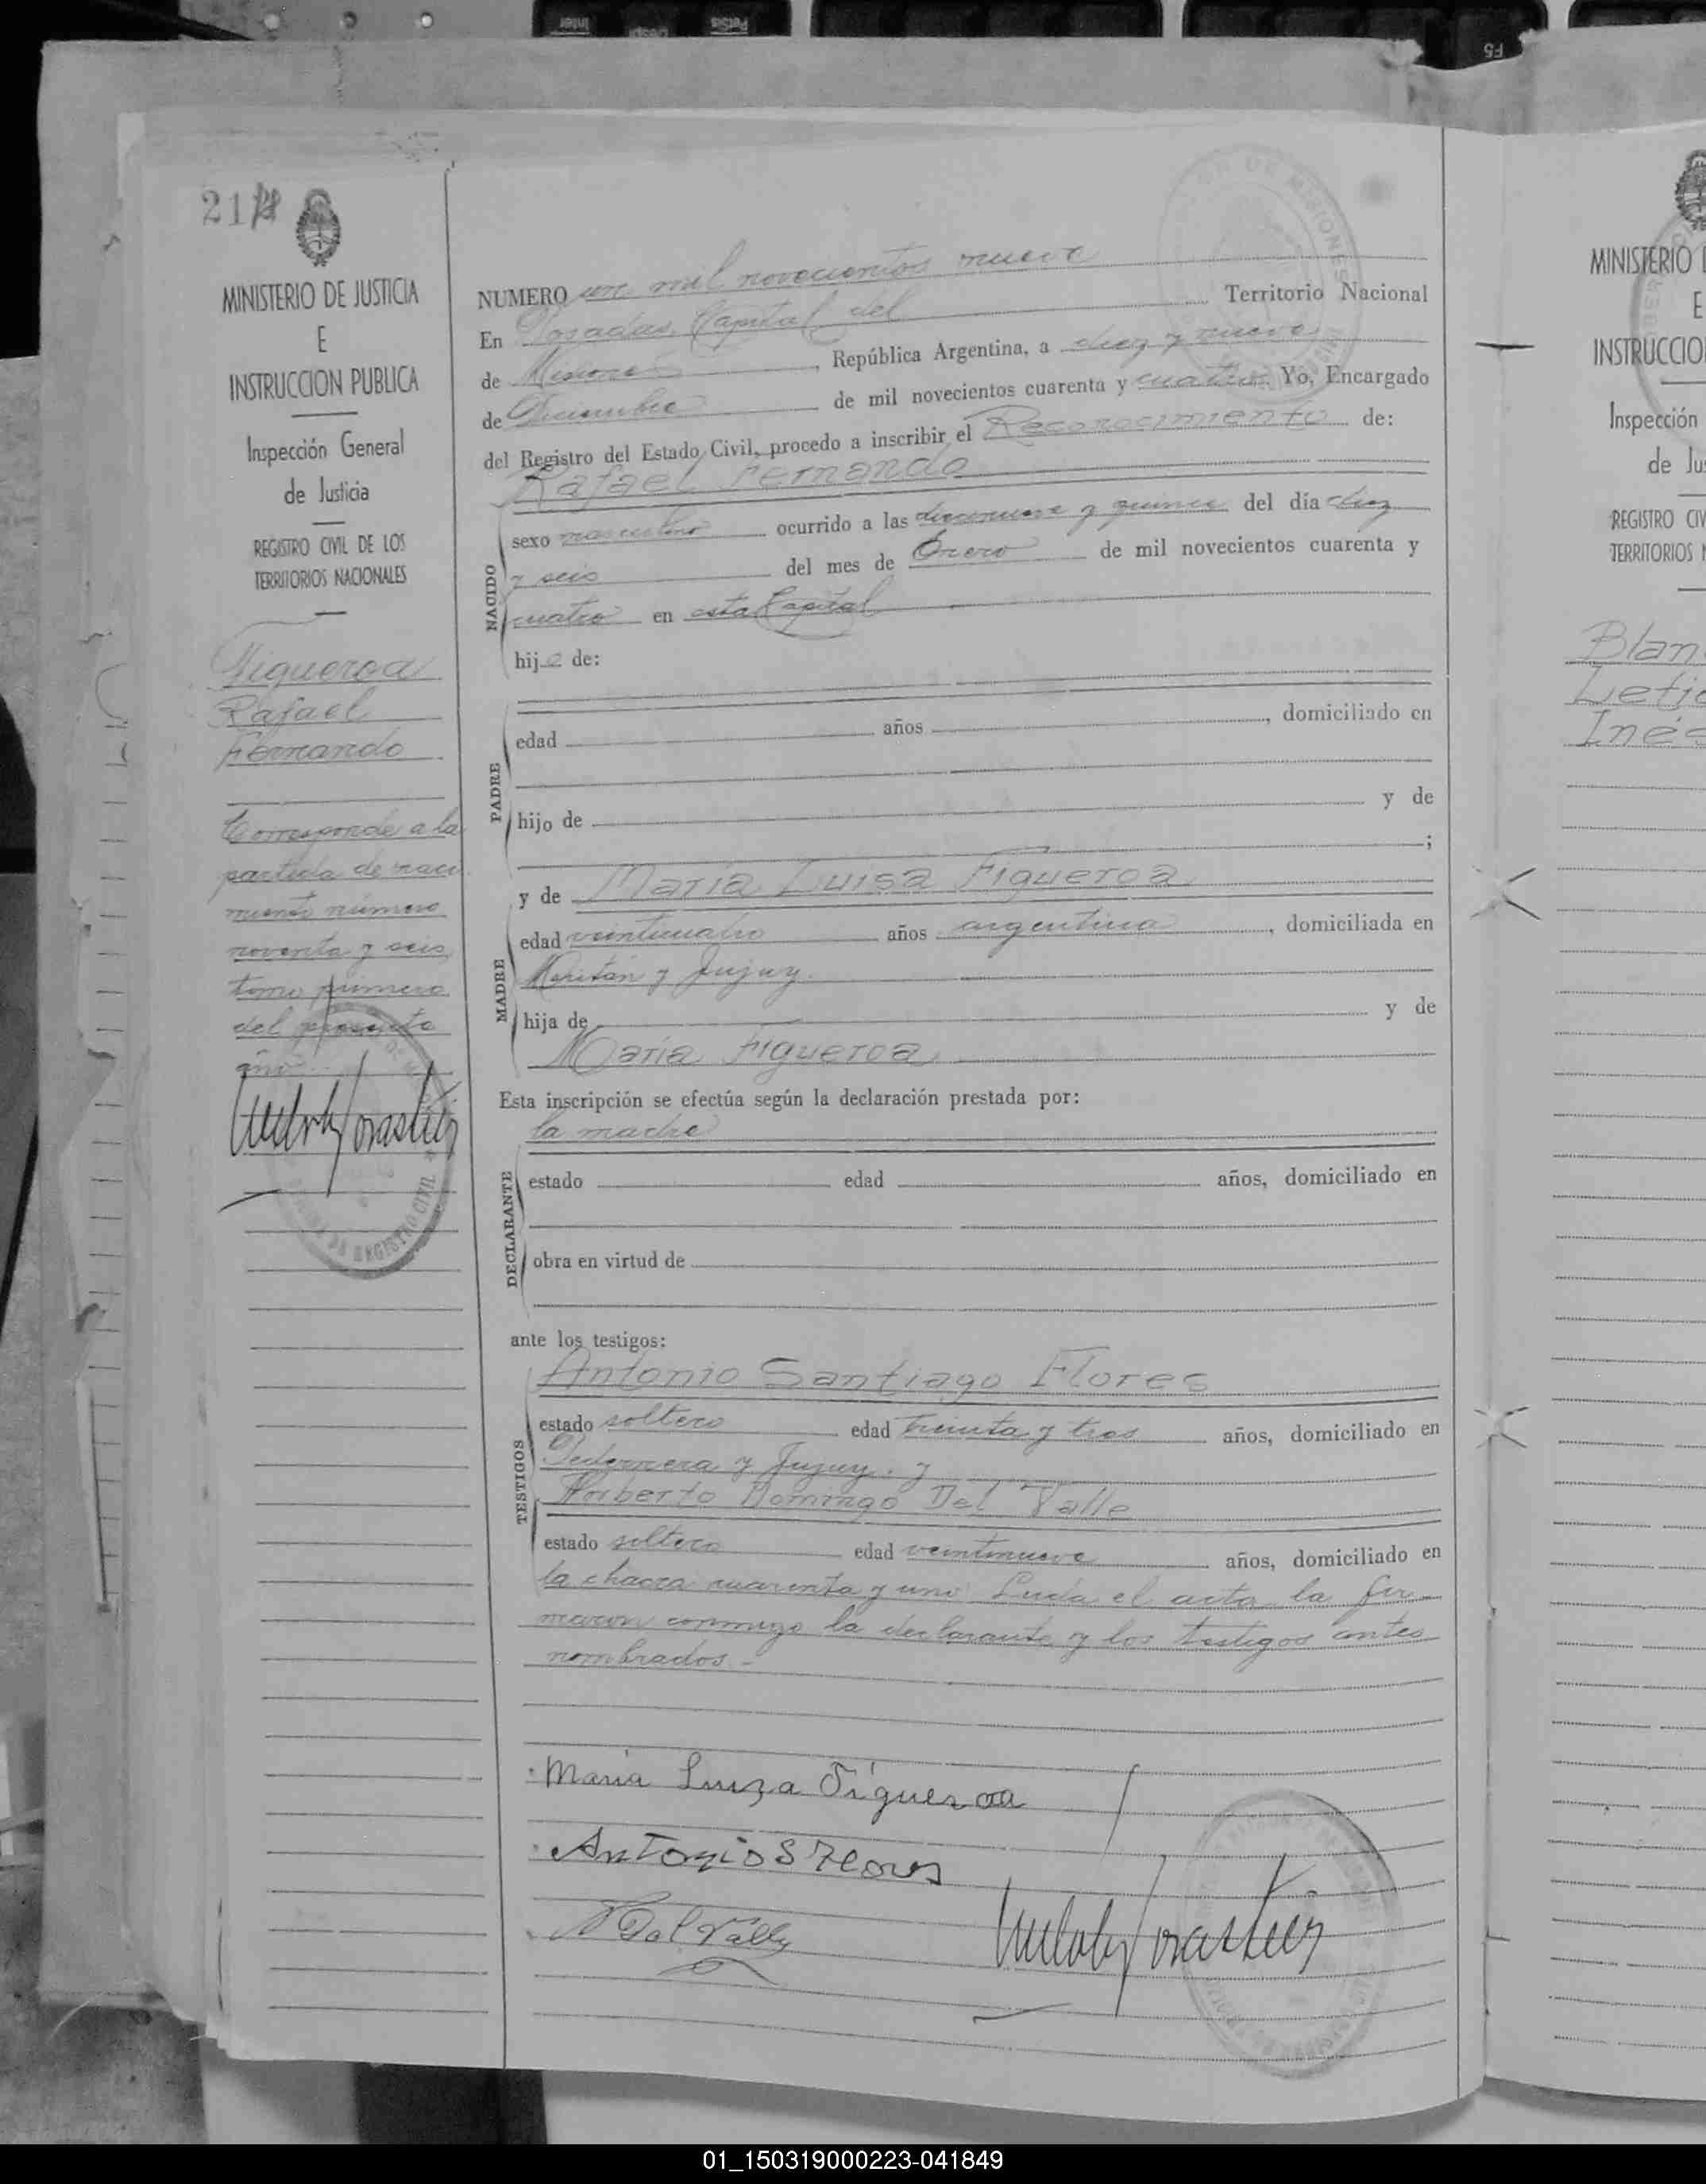 Inter
F5
21
MINISTERIO DE JUSTICIA
E
INSTRUCCION PUBLICA
Inspección General
de Justicia
REGISTRO CIVIL DE LOS
TERRITORIOS NACIONALES
Figueroa
Rafael
Fernando
Corresponde a la
partida de naci
miento número
noventa y seis
tomo primero
del presente
año
NUMERO un mil novecientos nueve
En Posadas, Capital del Territorio Nacional
de Misiones, República Argentina, a diez y nueve
de Diciembre de mil novecientos cuarenta y cuatro Yo, Encargado
del Registro del Estado Civil, procedo a inscribir el Reconocimiento de:
Rafael Fernando
NACIDO
sexo masculino ocurrido a las diecinueve y quince del día diez
y seis del mes de Enero de mil novecientos cuarenta y
cuatro en esta Capital
hijo de:
PADRE
edad años , domiciliado en
hijo de y de
;
y de María Luisa Figueroa
MADRE
edad veinticuatro años argentina, domiciliada en
y Jujuy.
hija de y de
María Figueroa
Esta inscripción se efectúa según la declaración prestada por:
la madre
DECLARANTE
estado edad años, domiciliado en
obra en virtud de
ante los testigos:
TESTIGOS
Antonio Santiago Flores
estado soltero edad treinta y tres años, domiciliado en
Pedernera y Jujuy. y
Norberto Domingo Del Valle
estado soltero edad veintinueve años, domiciliado en
la chacra cuarenta y uno Leida el acta la fir-
maron conmigo la declarante y los testigos antes
nombrados.-
Maria Luiza Figueroa
Antonio S Flores
N Del Valle
REGISTRO CIVIL
MINISTERIO
E
INSTRUCCIO
Inspección
de Jus
REGISTRO CIV
TERRITORIOS N
Blan
Letic
Inés
01_150319000223-041849